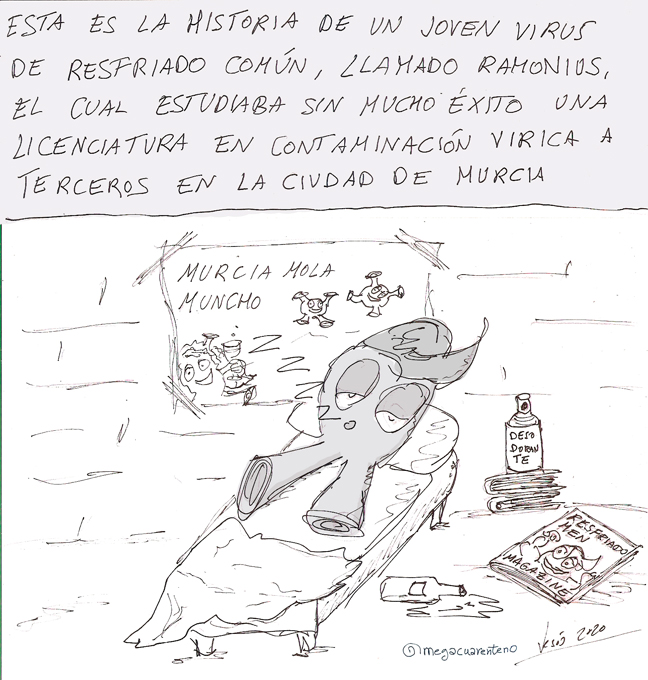 ESTA ES LA HISTORIA DE UN JOVEN VIRUS
DE RESFRIADO COMÚN, LLAMADO RAMONIUS,
EL CUAL ESTUDIABA SIN MUCHO ÉXITO UNA
LICENCIATURA EN CONTAMINACIÓN VIRICA A
TERCEROS EN LA CIUDAD DE MURCIA
MURCIA MOLA
MUNCHO
Z
Z
Z
DESO
DORAN
TE
RESFRIADO
MEN
MAGAZINE
@megacuarenteno
Jesús 2020